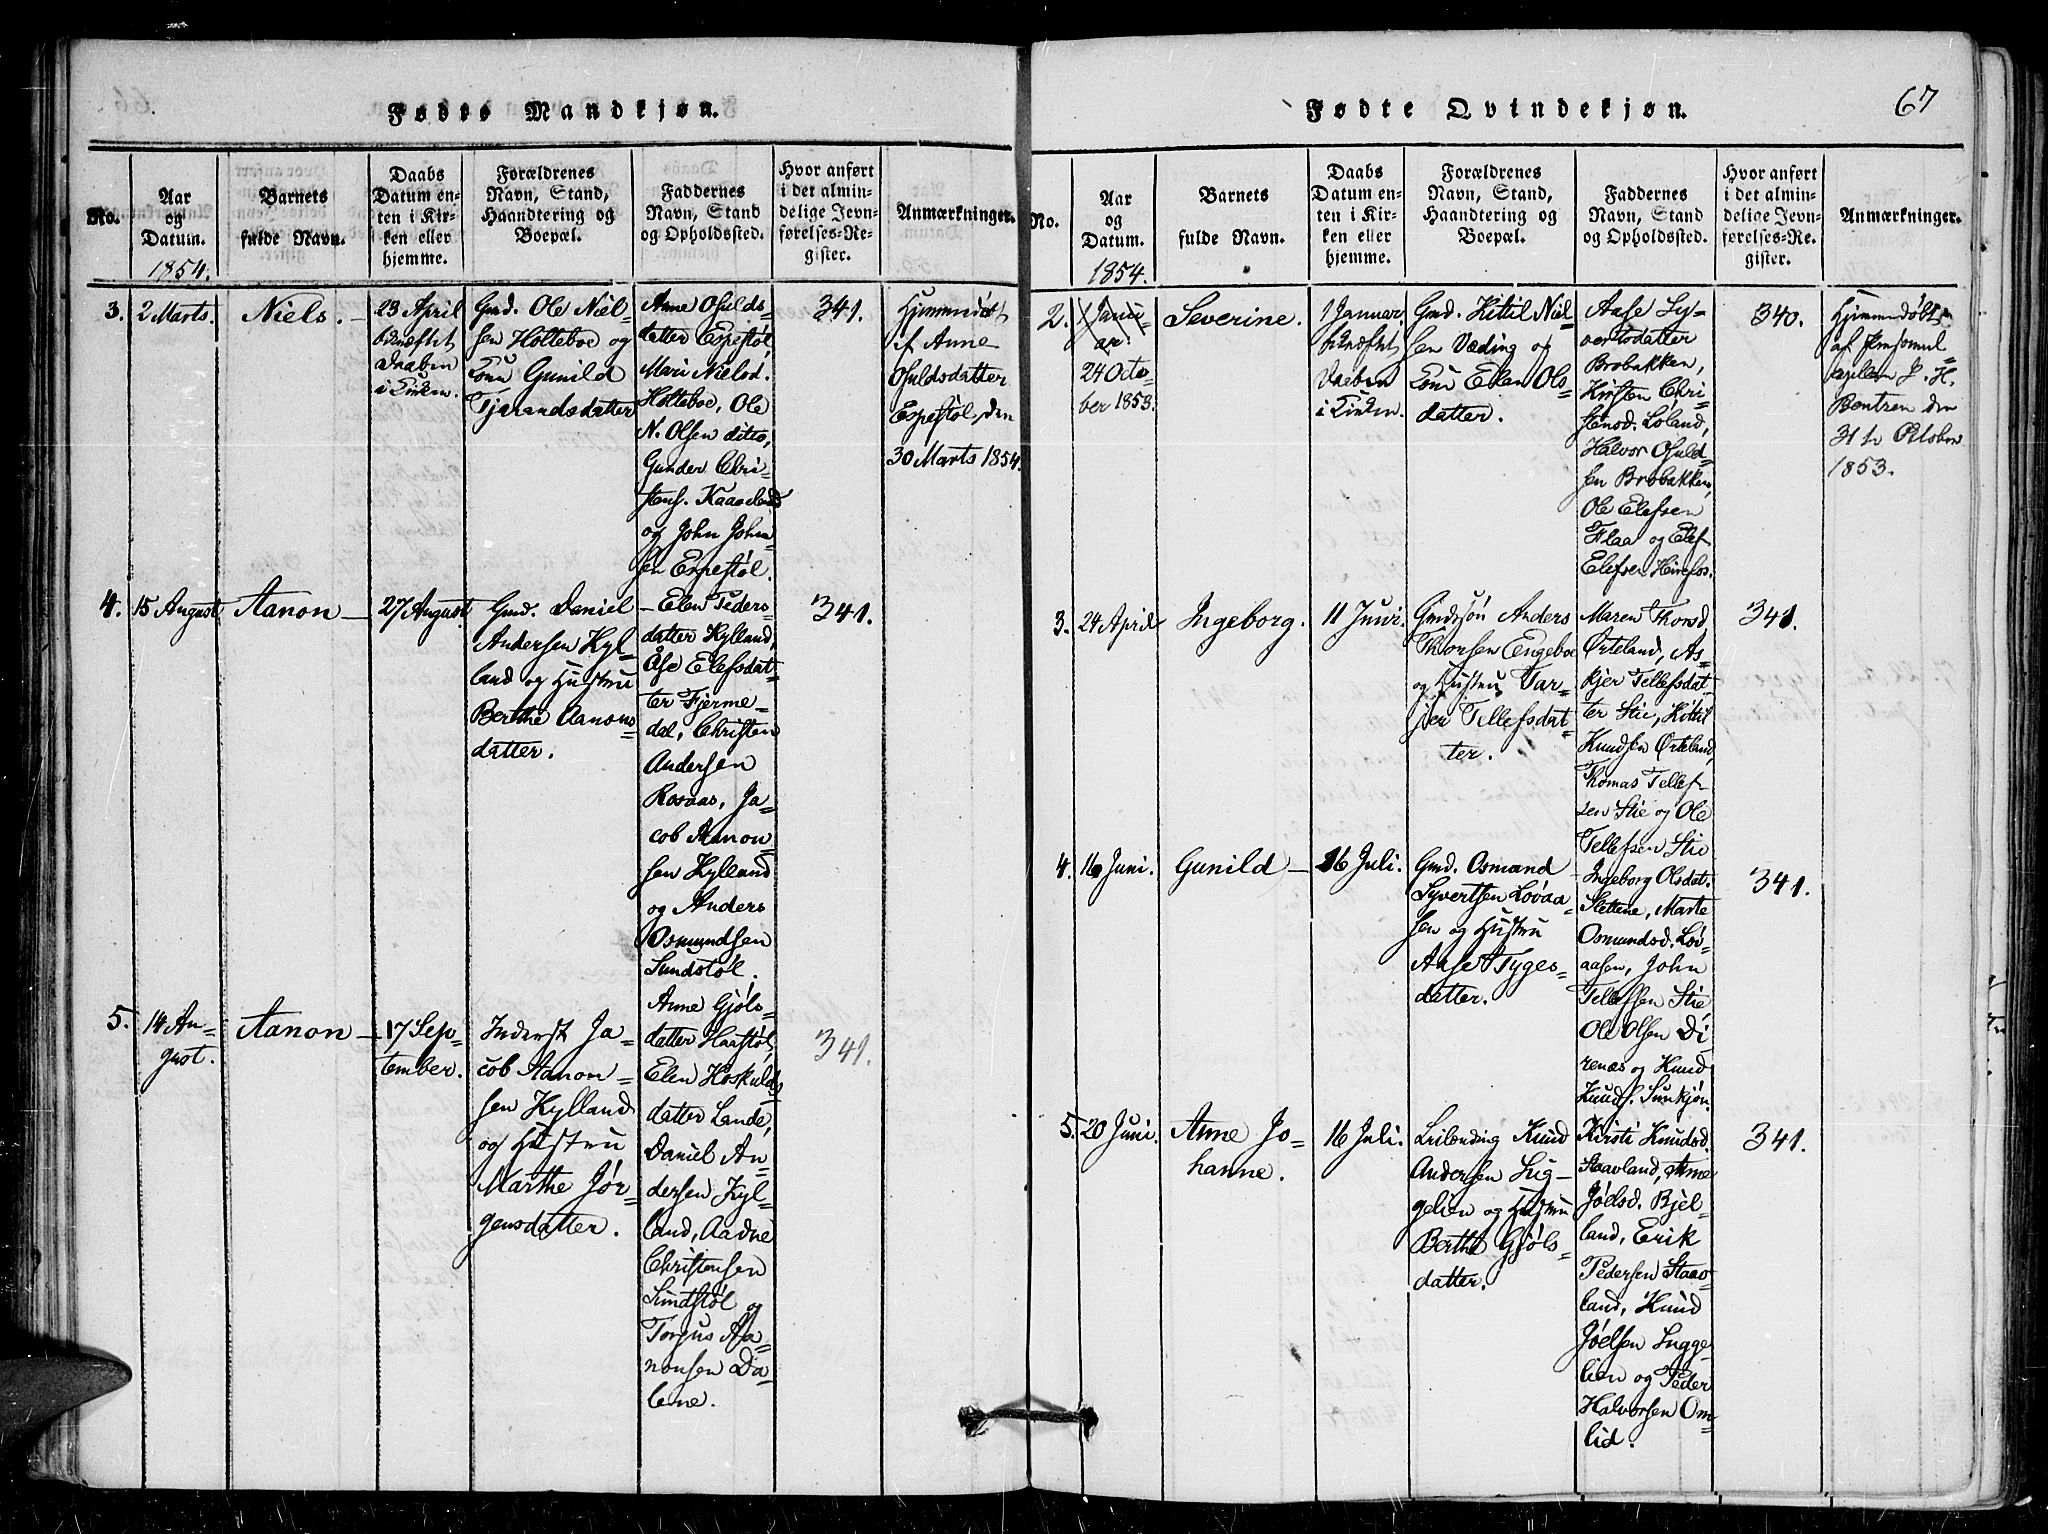 Fødte Mandkjøn.
No.
Aar
og
Datum.
1854.
Barnets
fulde Navn.
Daabs
Datum en-
ten i Kir-
ken eller
hjemme.
Forældrenes
Navn, Stand,
Haandtering og
Boepæl.
Faddernes
Navn, Stand
og Opholdssted.
Hvor anført
i det almin-
delige Jevn-
førelses-Re-
gister.
Anmærkninger.
3.
2 Marts.
Niels.
23 April
bekræftet
Daaben
i Kirken.
Gmd. Ole Niel-
sen Holteboe og
Kone Gunild
Tjarandsdatter
Anne Osulds-
datter Espestøl,
Mari Nielsd.
Holteboe, Ole
N. Olsen ditto,
Gunder Chri-
stens. Kaaseland
og John John-
sen Espestøl.
341.
Hjemmedøbt
af Anne
Osuldsdatter
Espestøl, den
30 Marts 1854.
4.
15 August
Aanon
27 August
Gmd. Daniel
Andersen Kyl-
land og Hustru
Berthe Aanons-
datter.
Elen Peders
datter Kylland,
Åse Elefsdat-
ter Fjerme-
dal, Christen
Andersen
Rosaas, Ja-
cob Aanon-
sen Kylland
og Anders
Osmundsen
Sundstøl.
341.
5.
14 Au-
gust.
Aanon
17 Sep-
tember.
Inderst Ja-
cob Aanon-
sen Kylland
og Hustru
Marthe Jør-
gensdatter.
Anne Gjøls-
datter Haastøl,
Elen Hoskulds
datter Lande,
Daniel An-
dersen Kyl-
land, Aadne
Christensen
Sundstøl og
Torjus Aa-
nonsen Da-
lene.
341.
Fødte Qvindekjøn.
67
No.
Aar
og
Datum.
1854.
Barnets
fulde Navn.
Daabs
Datum en-
ten i Kir-
ken eller
hjemme.
Forældrenes
Navn, Stand,
Haandtering og
Boepæl.
Faddernes
Navn, Stand
og Opholdssted.
Hvor anført
i det almin-
delige Jevn-
førelses-Re-
gister.
Anmærkninger.
2.
1 Janu-
ar.
24 Octo-
ber 1853.
Severine.
1 Januar
bekræftet
Daaben
i Kirken.
Gmd. Kittil Niel-
sen Væding og
Kone Elen Ols-
datter.
Aase Sy-
vertsdatter
Brobakken,
Kirsten Chri-
stensd. Loland,
Halvor Osuld-
sen Brobakken,
Ole Elefsen
Flaa og Elef
Elefsen Heirefos.
340.
Hjemmedøbt
af
P. H.
Bentsen den
31te October
1853.
3.
24 April
Ingeborg.
11 Juni.
Gmdssøn Anders
Thorsen Engeboe
og Hustru Tar-
jer Tellefsdat-
ter.
Maren Thorsd.
Ørteland, As-
kjer Tellefsdat-
ter Stie, Kittil
Knudsen Ørteland,
Thomas Tellef-
sen Stie og Ole
Tellefsen Stie
341.
4.
16 Juni.
Gunild
16 Juli.
Gmd. Osmund
Syvertsen Løvaa-
sen og Hustru
Aase Tyges-
datter.
Ingeborg Olsdat.
Slettene, Marte
Osmundsd. Løv-
aasen, John
Tellefsen Stie
Ole Olsen Di
renæs og Knud
Knuds. Sunkjøn.
341.
5.
20 Juni.
Anne Jo-
hanne.
16 Juli.
Leilending Knud
Andersen Lug-
gelien og Hustru
Berthe Gjøls-
datter.
Kirsti Knudsd.
Staavland, Anne
Joelsd. Bjel-
land, Erik
Pedersen Staav-
land, Knud
Joelsen Lugge-
lien og Peder
Halvorsen Om-
lid.
341.